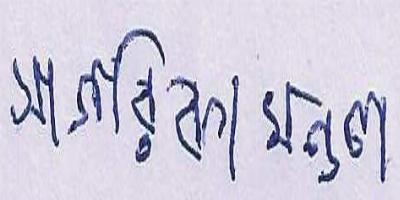 সাগরিকা মন্ডল